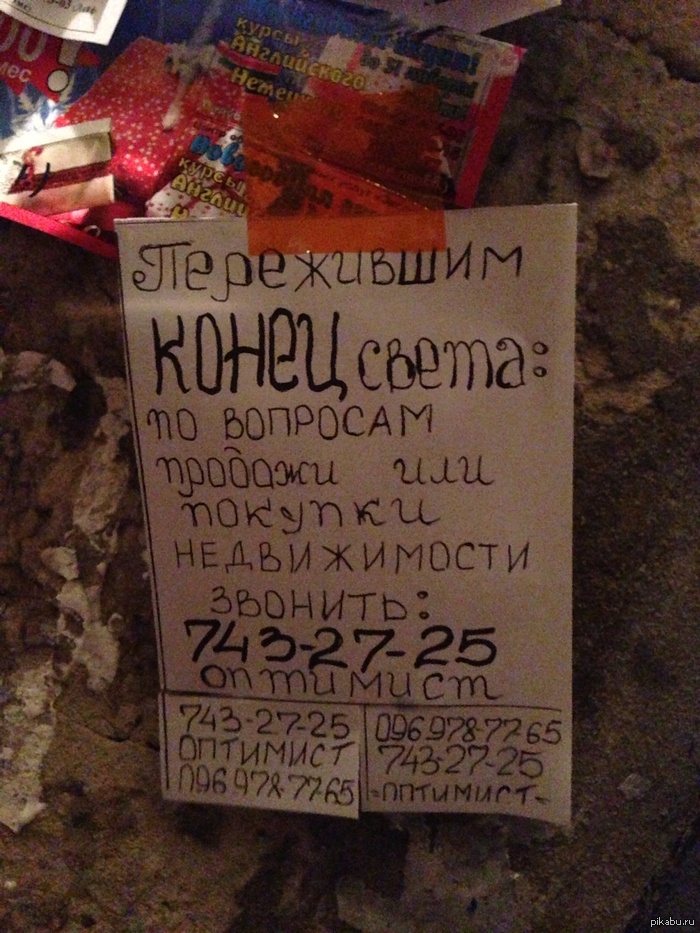 курсы
Английского
Немец
курсы
Английс
Пережившим
КОНЕЦ света:
по ВОПРОСАМ
продажи или
покупки
НЕДВИЖИМОСТИ
ЗВОНИТЬ:
743-27-25
оптимист
743-27-25
ОПТИМИСТ
096 978 77 65
096 978 77 65
743-27-25
-ОПТИМИСТ-
pikabu.ru